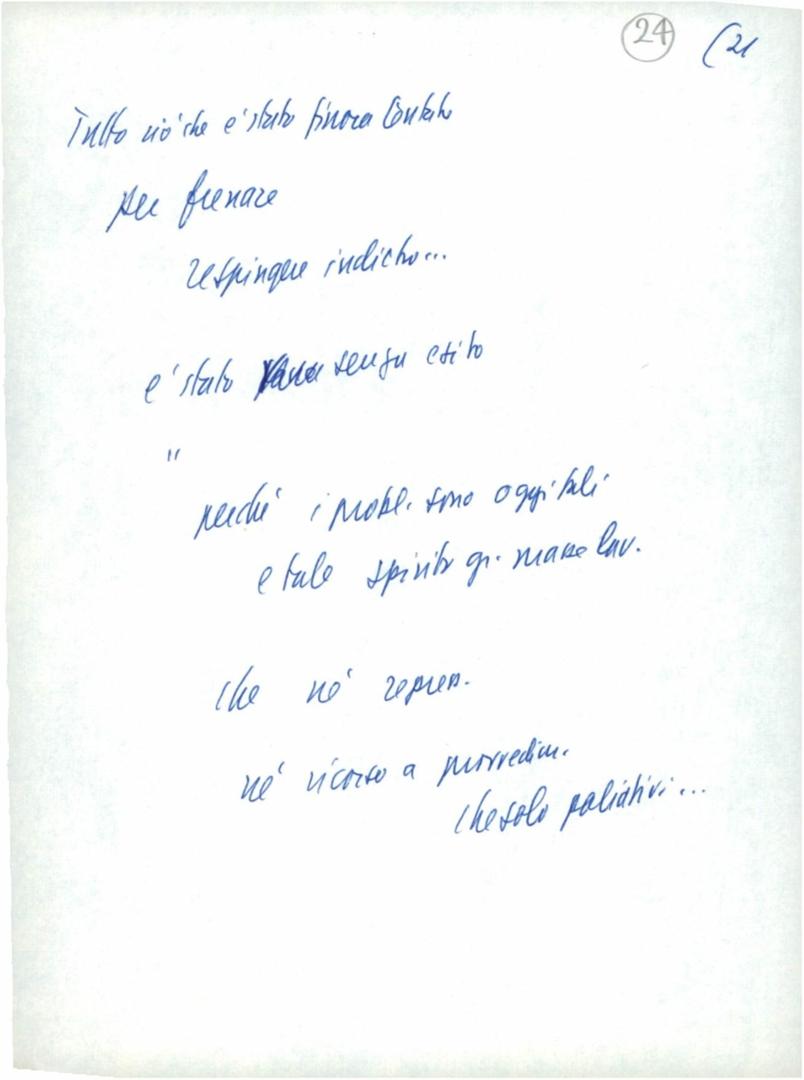 24 (21
Tutto ciò che è stato finora tentato
per frenare
respingere indietro...
è stato senza esito
"
perché i probl. sono oggi tali
e tale spirito gr. masse lav.
che né repress.
né ricorso a provvedim.
che solo paliativi...